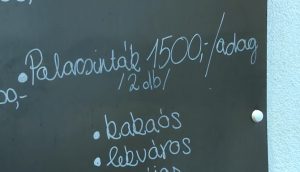 • Palacsinták 1500,-/adag
/2 db/
00,-
• kakaós
• lekváros